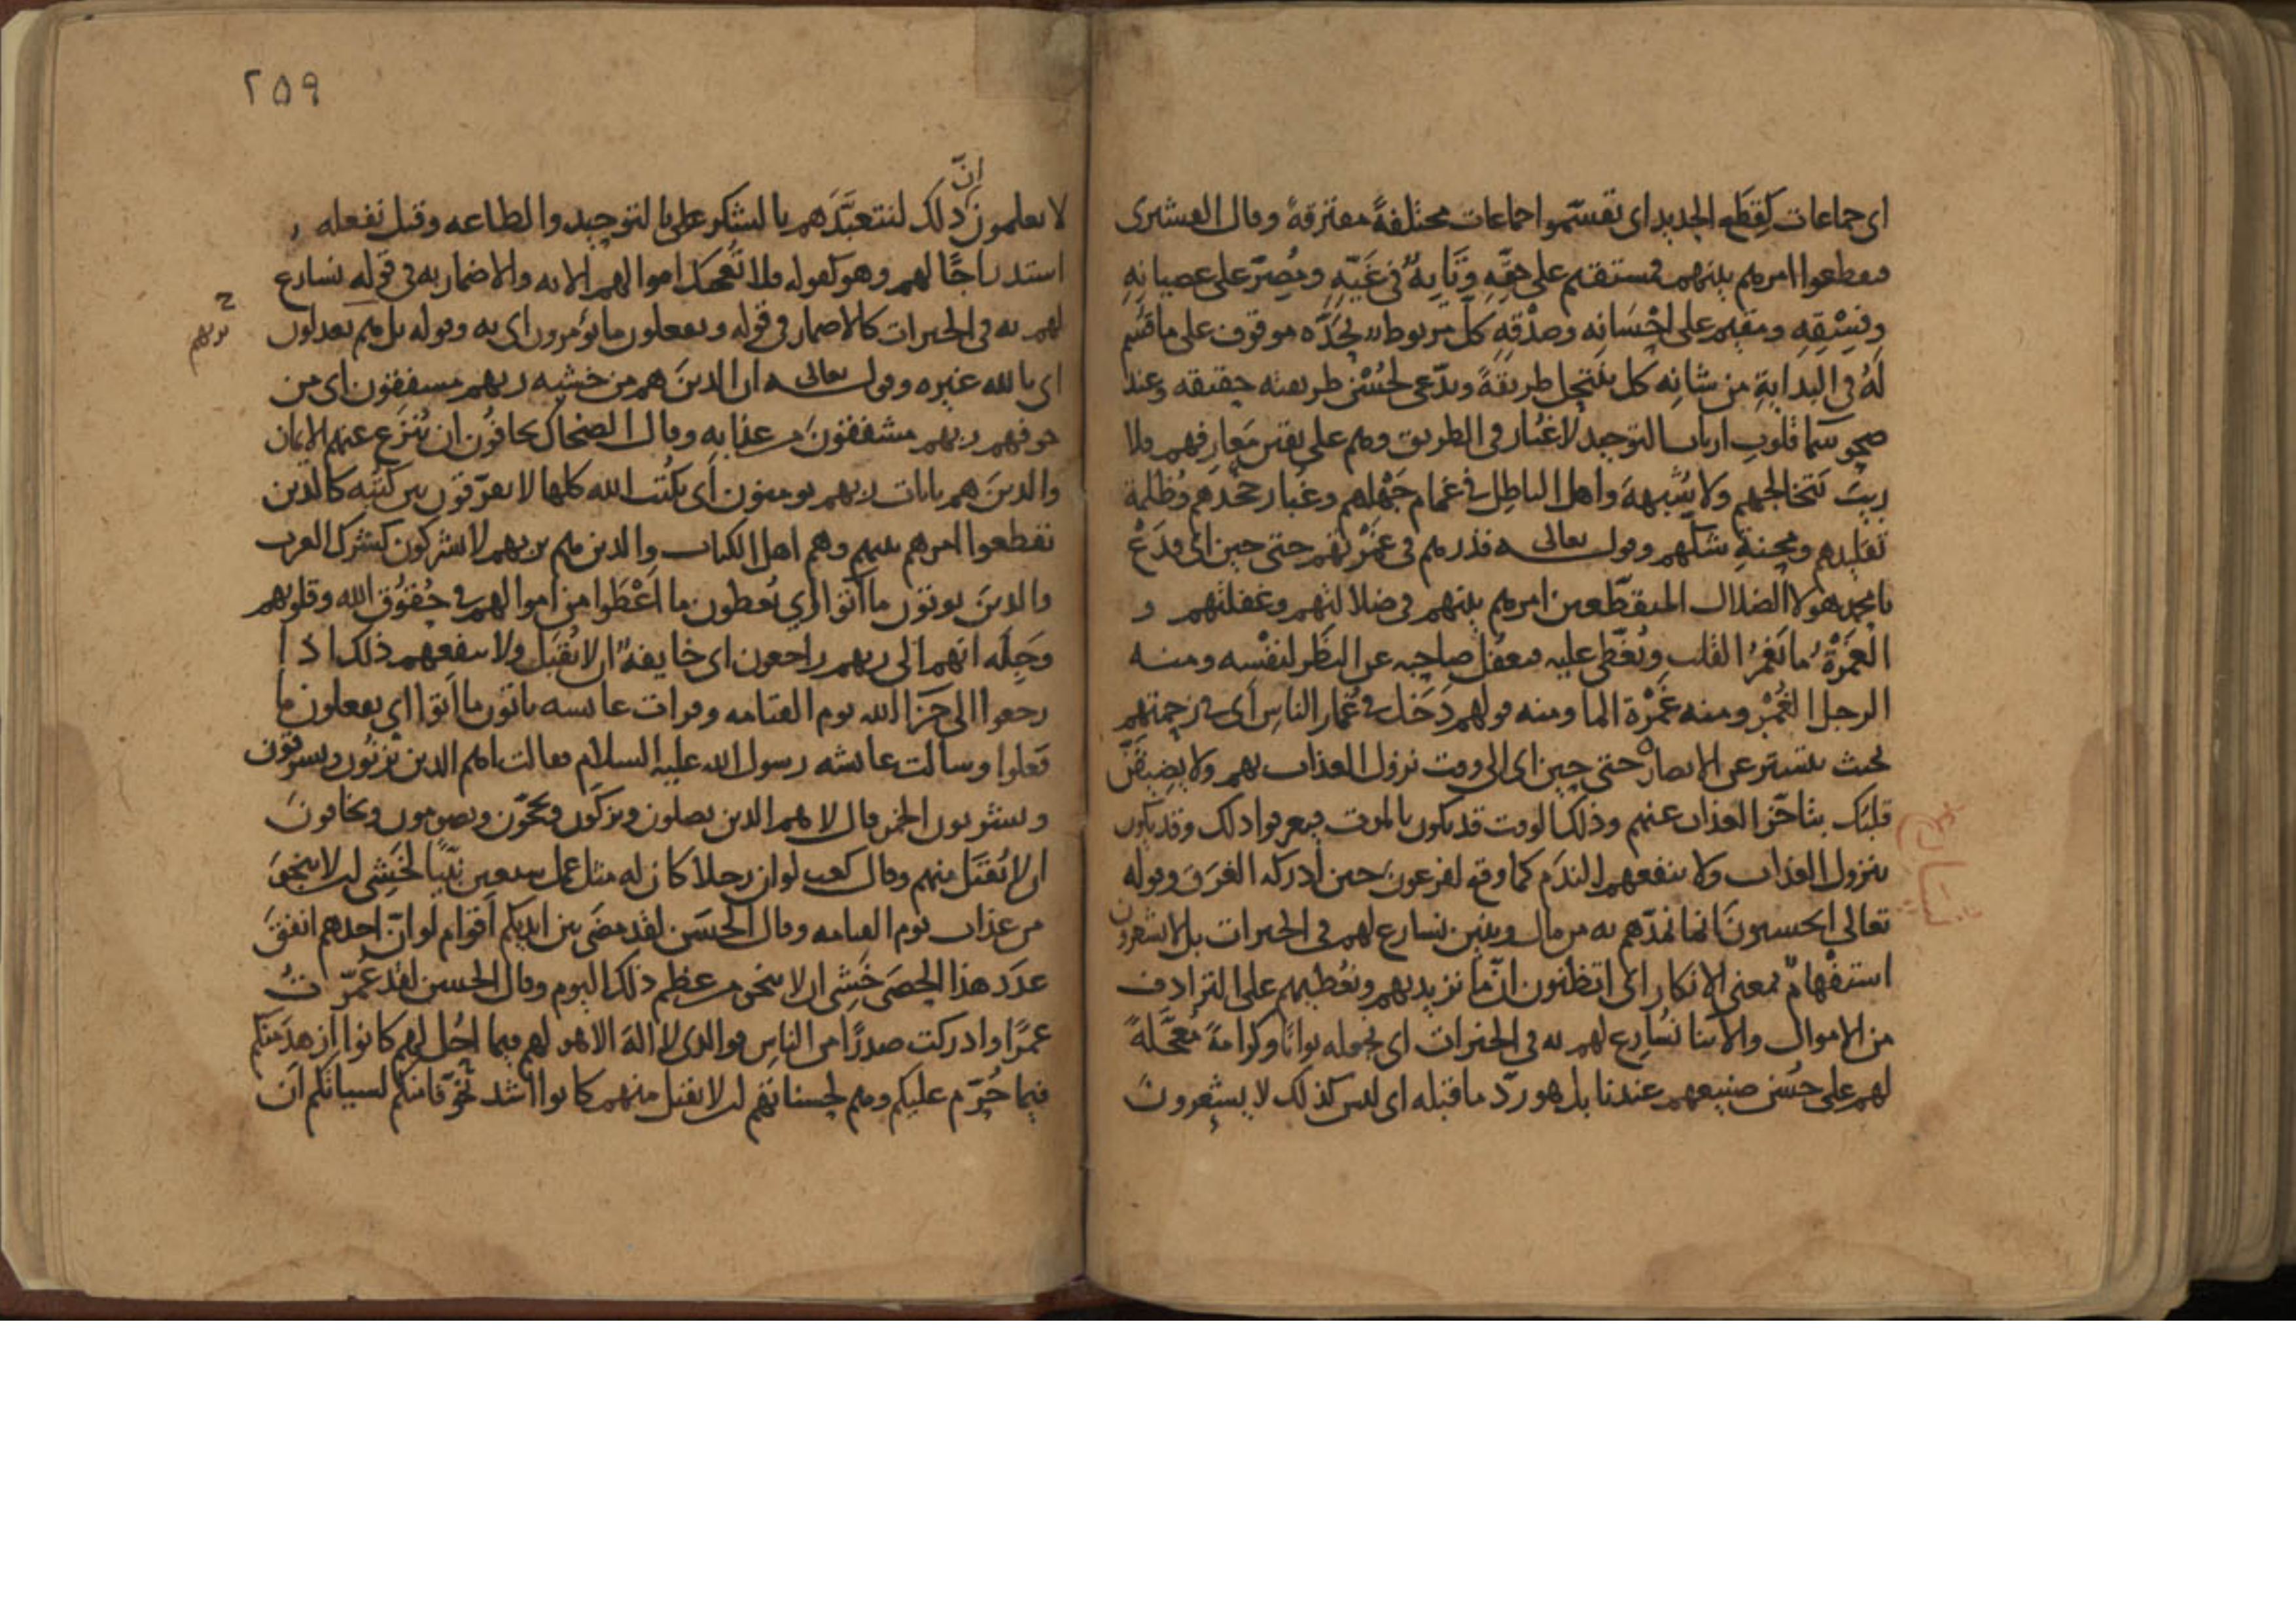 اى جماعات كقطع الحديد اى تقسموا جماعات مختلفة مفترقة وقال القشيرى
فتقطعوا امرهم بينهم فمستقيم على حقه وتايه فى غيه ومصر على عصيانه
وفسقه ومقيم على احسانه وصدقه كل مربوط بحده موقوف على ما قسم
له فى البداية من شانه كل ينتحل طريقة ويدعى لحسن طريقته حقيقه وعند
صحو سما قلوب ارباب التوحيد لا غبار فى الطريق وهم على يقين معارفهم فلا
ريب يتخالجهم ولا شبهة واهل الباطل فى غمام جهلهم وغبار جحدهم وظلمة
تقليدهم ومحنة شكهم وقوله تعالى فذرهم فى غمرتهم حتى حين اى فدع
يا محمد هولا الضلال المتقطعين امرهم بينهم فى ضلالتهم وغفلتهم و
الغمرة ما يغمر القلب ويغطى عليه فيغفل صاحبه عن النظر لنفسه ومنه
الرجل الغمر ومنه غمرة الما ومنه قولهم دخل فى غمار الناس اى فى زحمتهم
بحيث يستتر عن الابصار حتى حين اى الى وقت نزول العذاب بهم ولا يضيقن
قلبك بتاخر العذاب عنهم وذلك الوقت قد يكون بالموت فيعرفوا ذلك وقد يكون
بنزول العذاب ولا ينفعهم الندم كما وقع لفرعون حين ادركه الغرق وقوله
تعالى ايحسبون انما نمدهم به من مال وبنين نسارع لهم فى الخيرات بل لا يشعرون
استفهام بمعنى الانكار اى اتظنون ان ما نزيدهم ونعطيهم على الترادف
من الاموال والابنا نسارع لهم به فى الخيرات اى نجعله ثوابا وكرامة معجلة
لهم على حسن صنيعهم عندنا بل هو رد ما قبله اى ليس كذلك لا يشعرون
٢٥٩
لا يعلمون ان ذلك لنتعبدهم بالشكر على بالتوحيد والطاعه وقيل نفعله
استدراجا لهم وهو كقوله فلا تعجبك اموالهم الايه والاضمار به فى قوله نسارع
لهم به فى الخيرات كالاضمار فى قوله ويفعلون ما يؤمرون اى به وقوله بل هم يعدلون
اى بالله غيره وقوله تعالى ان الذين هم من خشيه ربهم مشفقون اى من
خوفهم ربهم مشفقون من عذابه وقال الضحاك يخافون ان ينزع عنهم الايمان
والذين هم بايات ربهم يومنون اى بكتب الله كلها لا يفرقون بين كتبه كالذين
تقطعوا امرهم بينهم وهم اهل الكتاب والذين هم بربهم لا يشركون كشرك العرب
والذين يوتون ما آتوا اى يعطون ما اعطوا من اموالهم فى حقوق الله وقلوبهم
وجله انهم الى ربهم راجعون اى خايفة ان لا يقبل ولا ينفعهم ذلك اذا
رجعوا الى جزا الله يوم القيامه وقرات عايشه ياتون ما اتوا اى يفعلون ما
فعلوا وسالت عايشه رسول الله عليه السلام فقالت اهم الذين يزنون ويسرقون
ويشربون الخمر قال لا هم الذين يصلون ويزكون ويحجون ويصومون ويخافون
ان لا يقبل منهم وقال كعب لو ان رجلا كان له مثل عمل سبعين نبيا لخشى ان لا ينجو
من عذاب يوم القيامه وقال الحسن لقد مضى بين ايديكم اقوام لو ان احدهم انفق
عدد هذا الحصى خشى ان لا ينجو من عظم ذلك اليوم وقال الحسن لقد عمرت
عمرا وادركت صدرا من الناس فوالذى لا اله الا هو لهم فيما احل لهم كانوا ازهد منكم
فيما حرم عليكم وهم لحسناتهم ان لا يقبل منهم كانوا اشد تخوفا منكم لسياتكم ان